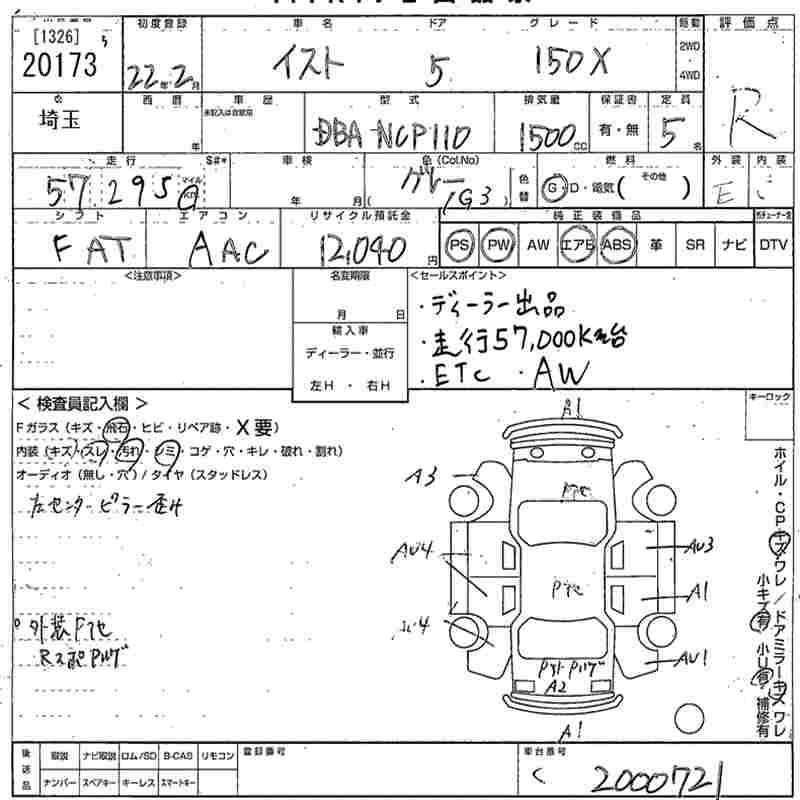 [1326]
20173
初度登録
22年2月
車名
イスト
ドア
5
グレード
150X
駆動
2WD
4WD
評価点
R
埼玉
西暦
年
車歴
未記入は自家用
型式
DBA-NCP110
排気量
1500CC
保証書
有・無
定員
5名
走行
57,295
マイル
km
S#*
車検
年 月
色(Col.No)
グレー
(1G3)
色替
燃料
G・D・電気( その他 )
外装
E
内装
シフト
FAT
エアコン
AAC
リサイクル預託金
12,040円
純正装備品
PS
PW
AW
エアB
ABS
革
SR
ナビ
DTV
<注意事項>
名変期限
月 日
輸入車
ディーラー・並行
左H・右H
<セールスポイント>
・ディーラー出品
・走行57,000Km台
・ETC ・AW
<検査員記入欄>
Fガラス(キズ・飛石・ヒビ・リペア跡・X要)
内装(キズ・スレ・汚れ・シミ・コゲ・穴・キレ・破れ・割れ)
オーディオ(無し・穴)/タイヤ(スタッドレス)
左センターピラー歪み
外装Pセ
キーロック
A1
A3
Pセ
AU4
AU3
Pセ
A1
AU4
A2
AU1
A1
ホイル・CPキズ・ワレ/ドアミラーキズワレ
小キズ有 小U有 補修有
後送品
取説
ナビ取説
ロム/SD
B-CAS
リモコン
ナンバー
スペアキー
キーレス
スマートキー
登録番号
車台番号
2000721